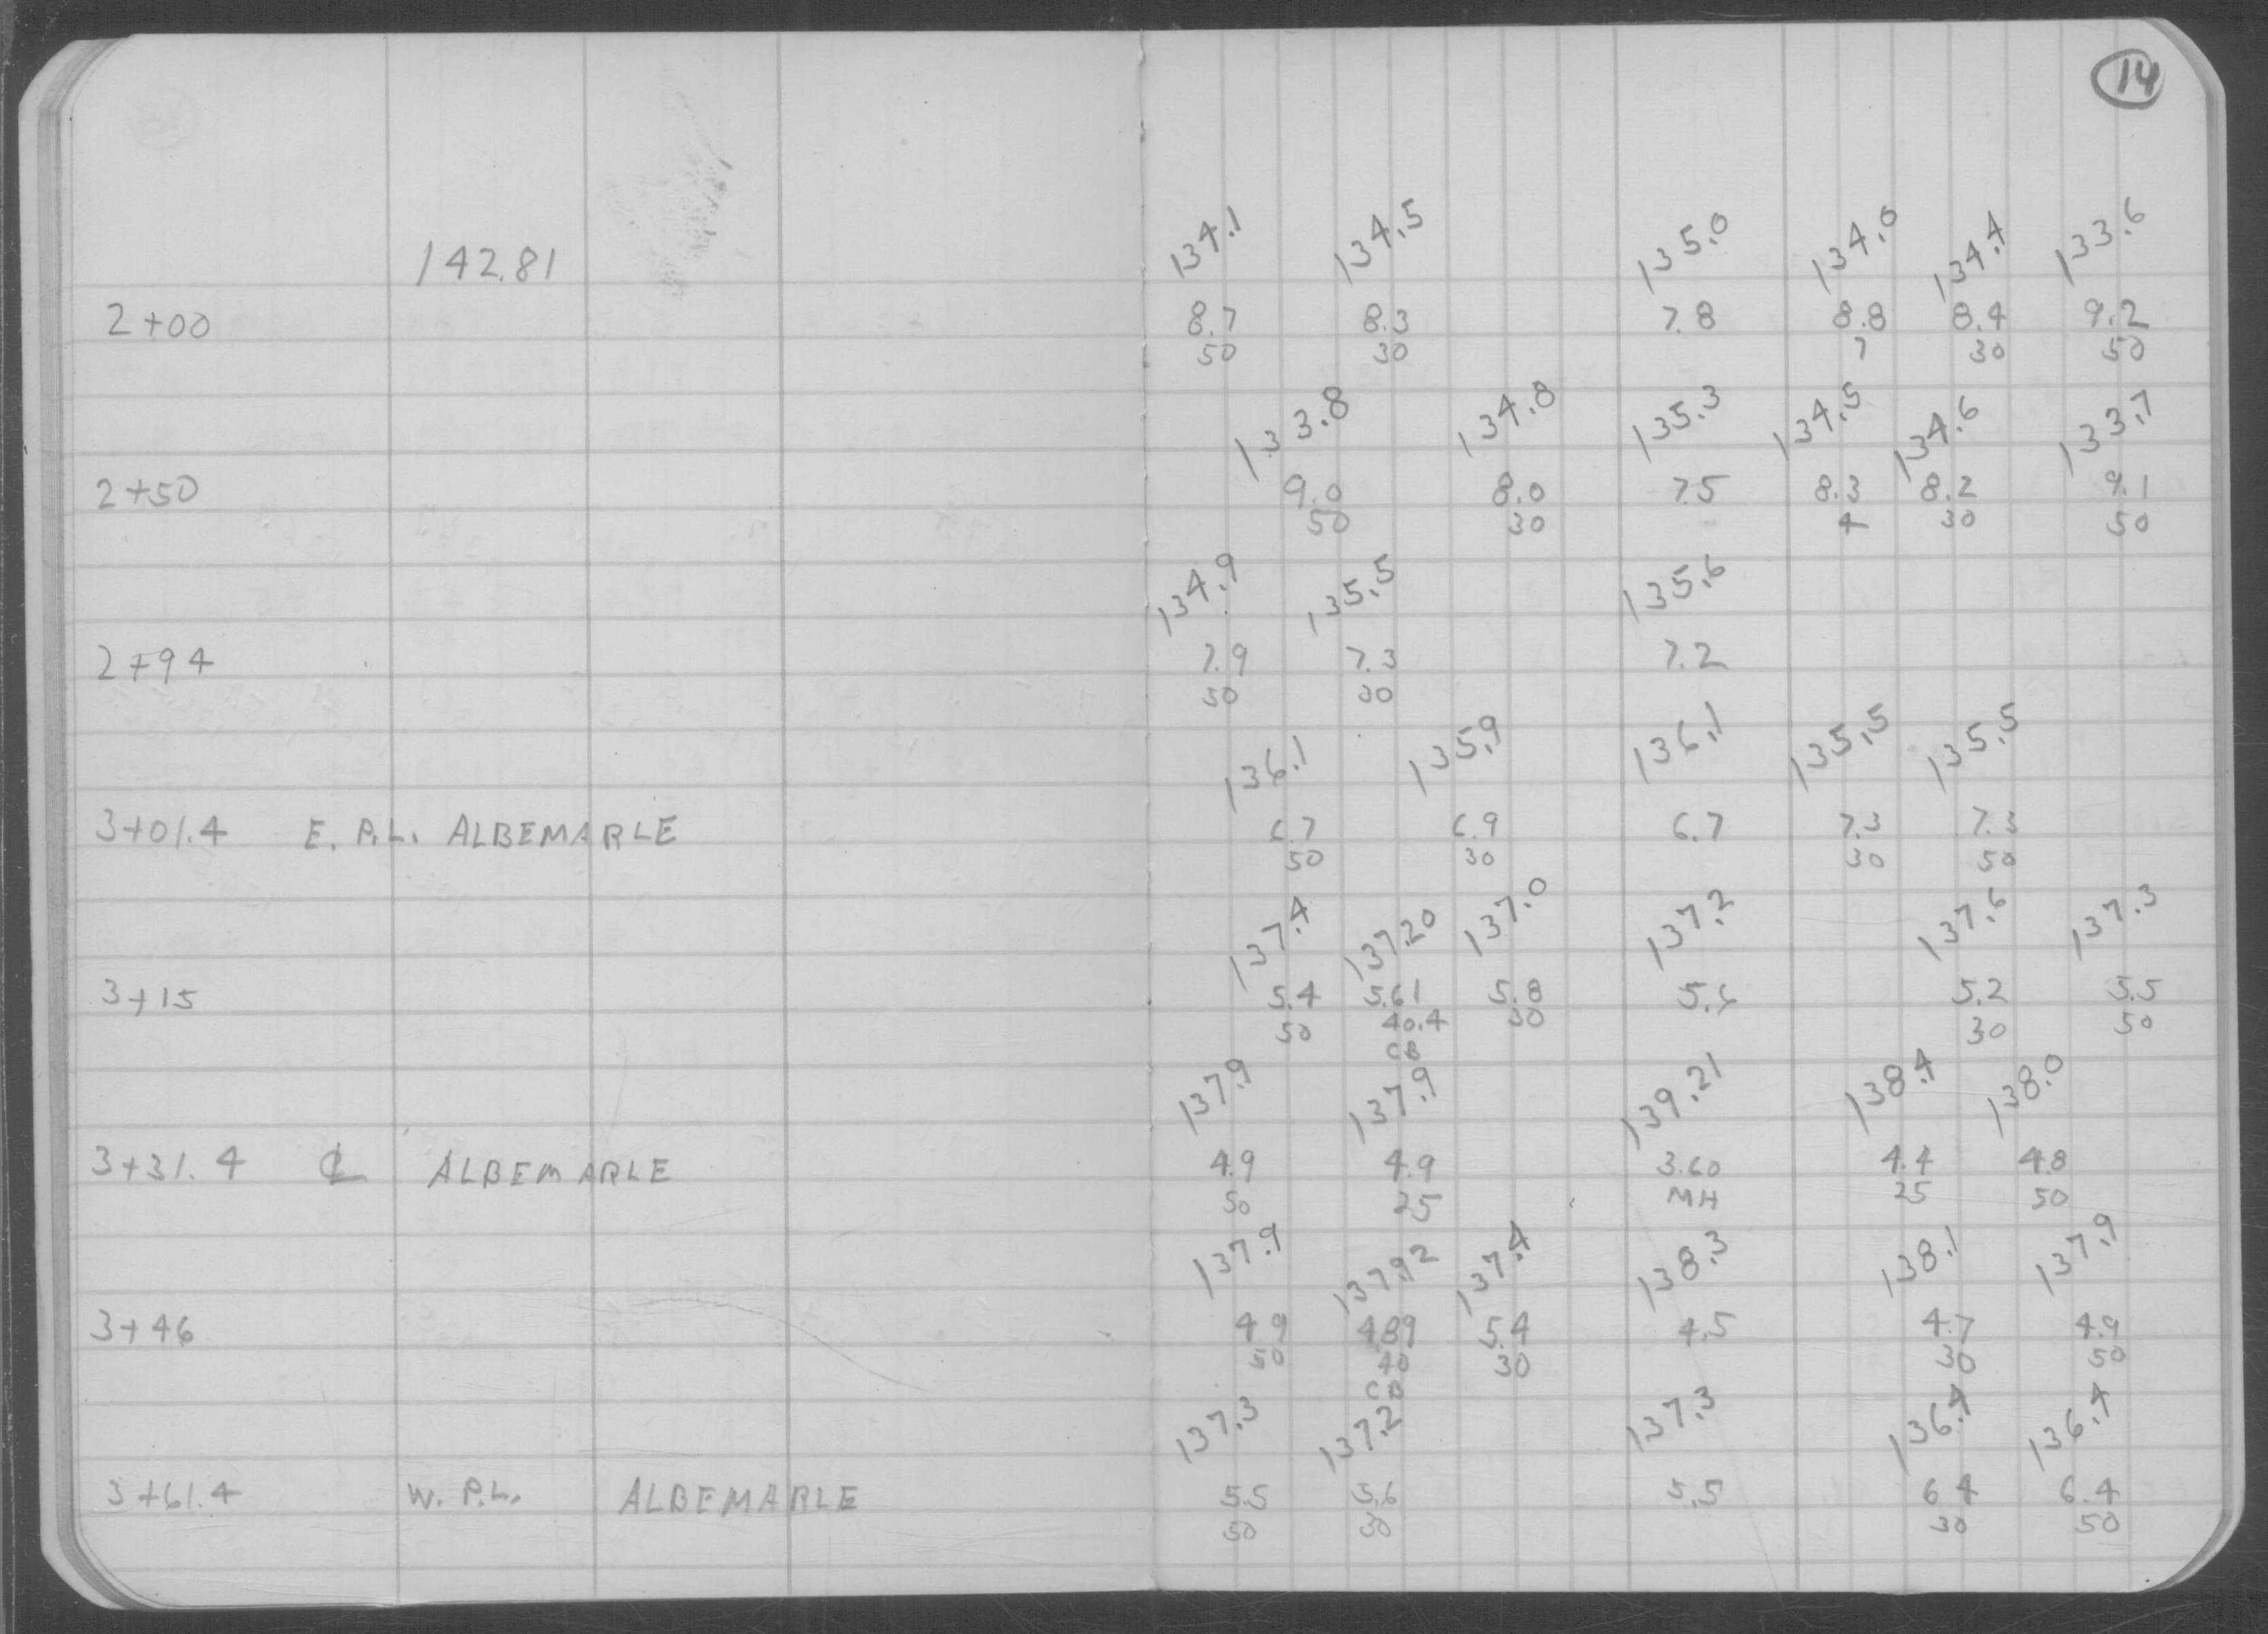 14
134.1 134.5 135.0 134.0 134.4 133.6
142.81
2+00 8.7 8.3 7.8 8.8 8.4 9.2
50 30 7 30 50
133.8 134.8 135.3 134.5 134.6 133.7
2+50 9.0 8.0 7.5 8.3 8.2 9.1
50 30 4 30 50
134.9 135.5 135.6
2+94 7.9 7.3 7.2
50 30
136.1 135.9 136.1 135.5 135.5
3+01.4 E. P.L. ALBEMARLE 6.7 6.9 6.7 7.3 7.3
50 30 30 50
137.4 137.20 137.0 137.2 137.6 137.3
3+15 5.4 5.61 5.8 5.6 5.2 5.5
50 40.4 30 30 50
CB
137.9 137.9 139.21 138.4 138.0
3+31.4 ℄ ALBEMARLE 4.9 4.9 3.60 4.4 4.8
50 25 MH 25 50
137.9 137.92 137.4 138.3 138.1 137.9
3+46 4.9 4.89 5.4 4.5 4.7 4.9
50 40 30 30 50
CB
137.3 137.2 137.3 136.4 136.4
3+61.4 W. P.L. ALBEMARLE 5.5 5.6 5.5 6.4 6.4
50 30 30 50